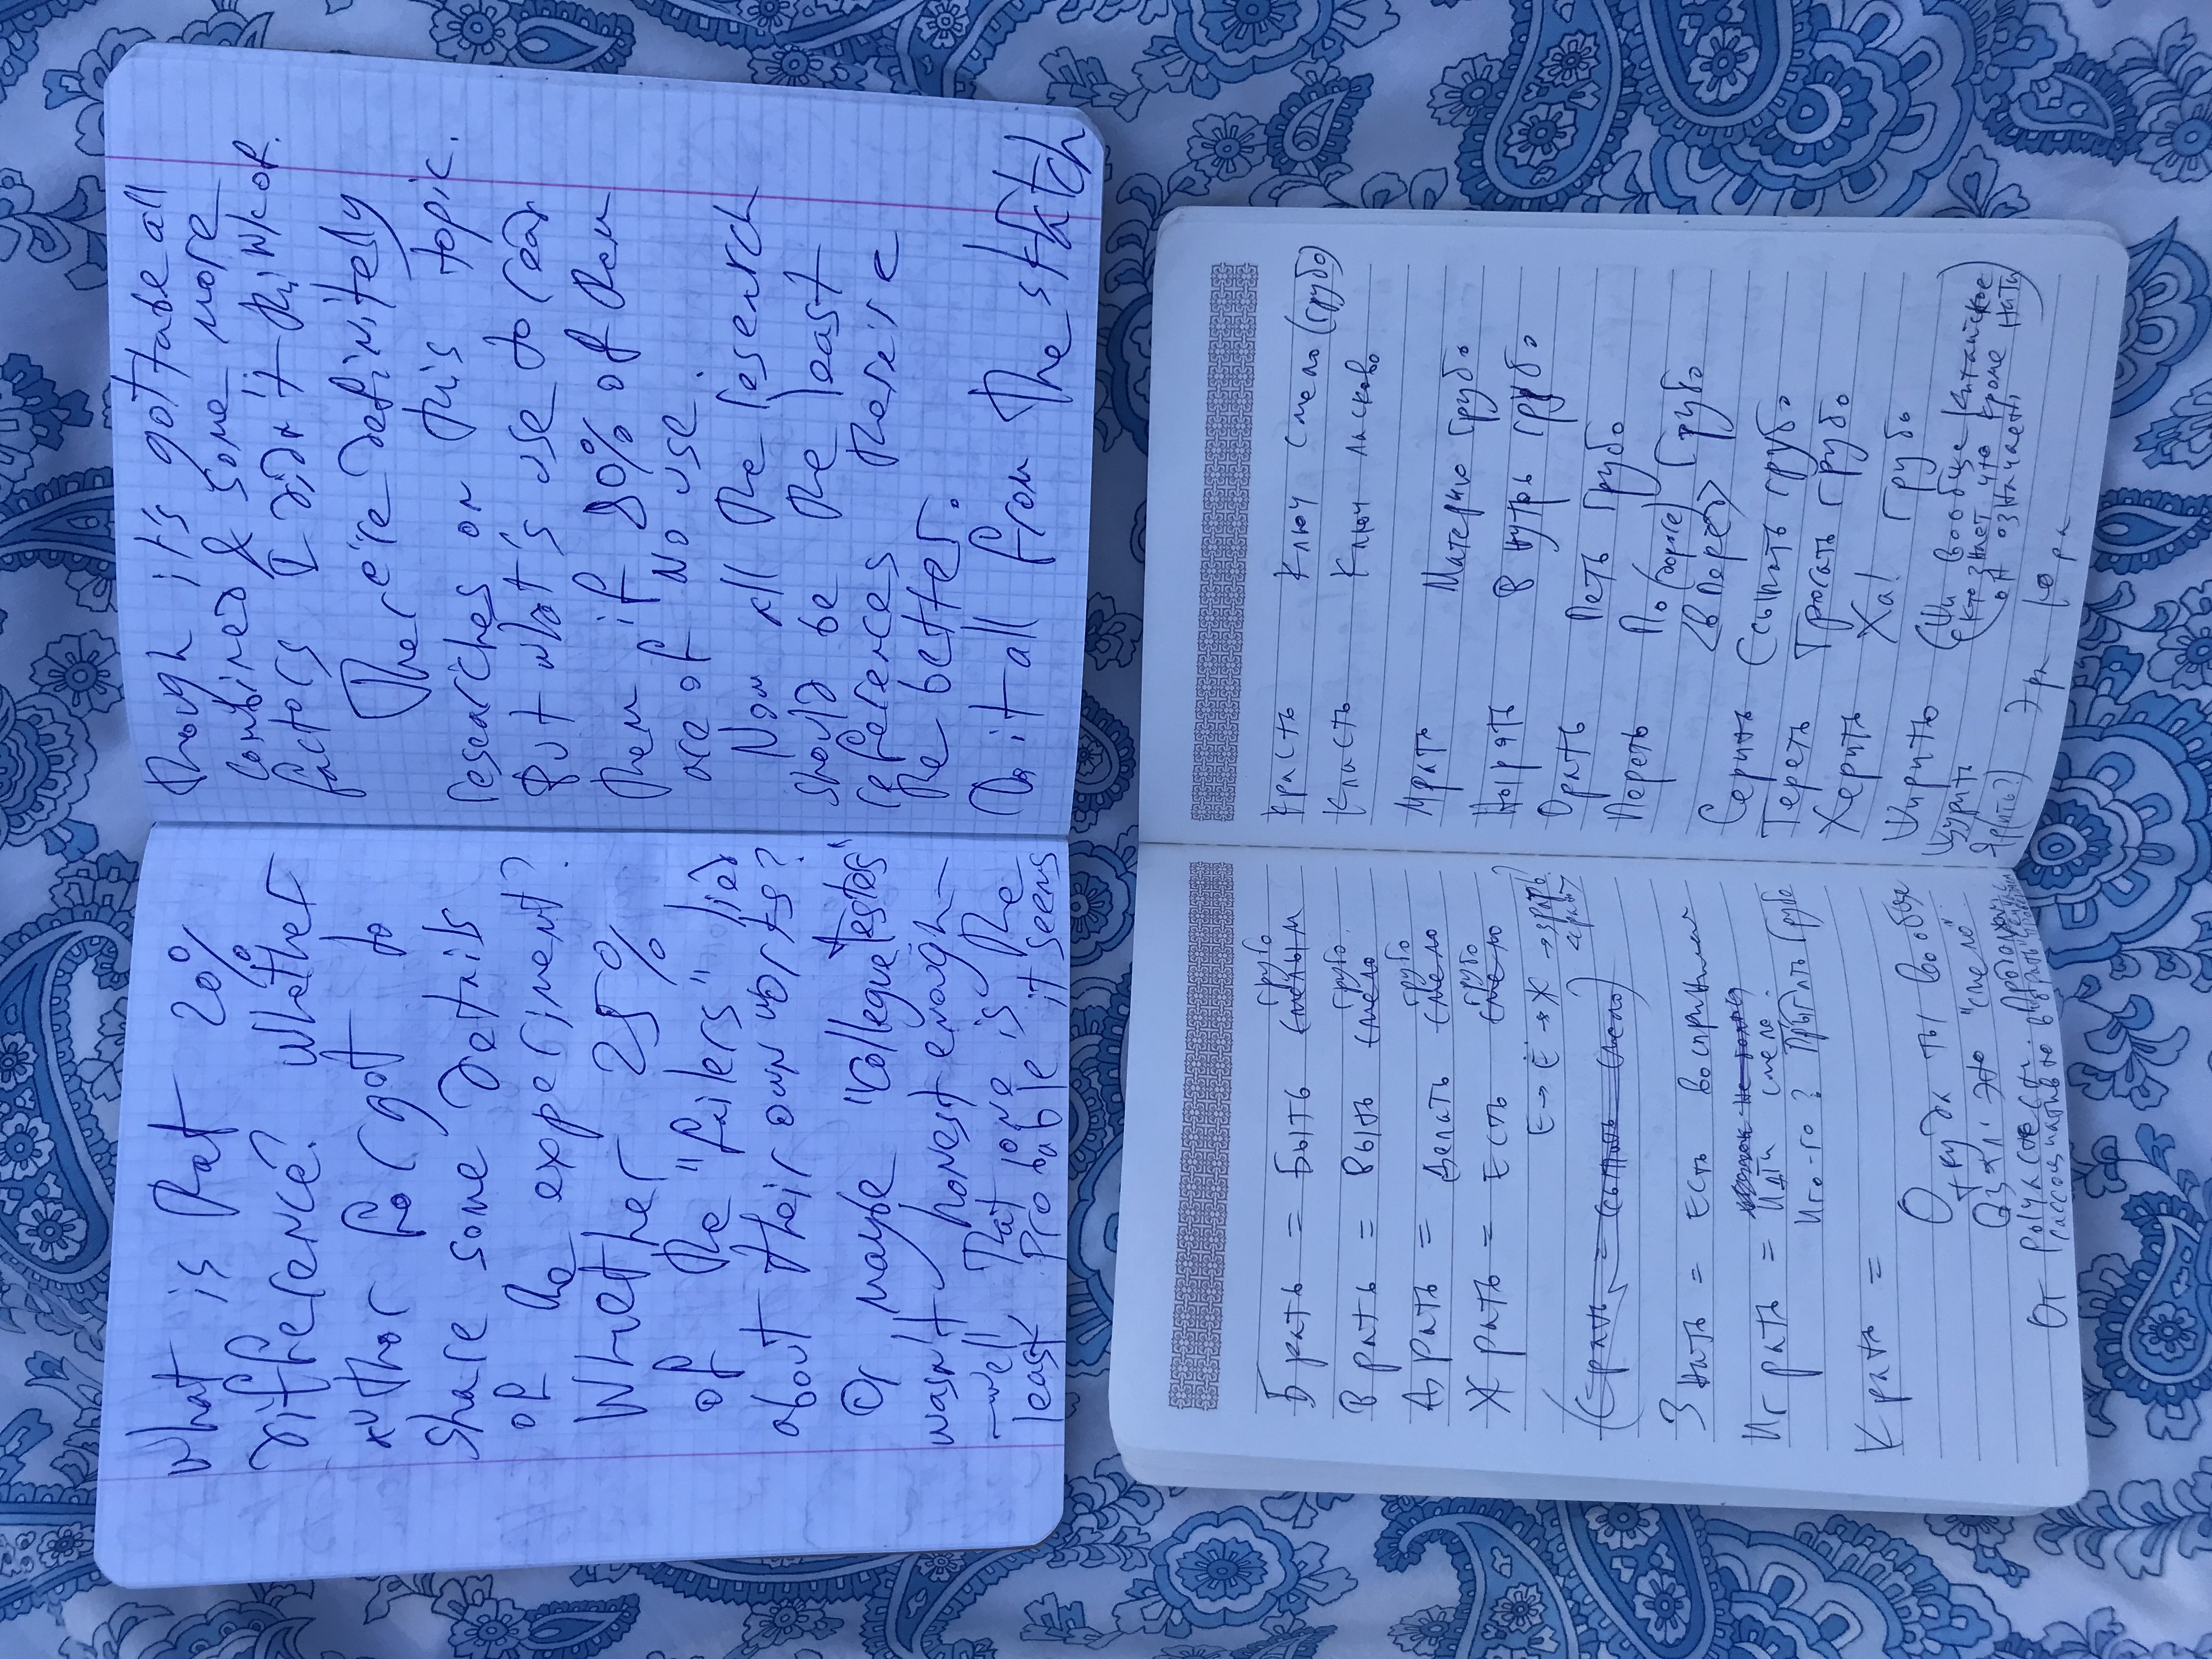 What is that 20%
difference? Whether
author forgot to
share some details
of the experiment?
Whether 25%
of the "failers" lied
about their own works?
Or maybe "collegue testes"
wasn't honest enough –
– well, that one is the
least probable it seems
though it's gottabe all
combined & some more
factors I didn't think of.
There're definitely
researches on this topic.
But what's use to read
them if 80% of them
are of no use.
Now all the research
should be the least
references there're
the better.
Do it all from the
грубо
Брать = Быть смелым
грубо
Врать = Выть смело
грубо
Драть = Делать смело
грубо
Жрать = Есть смело
Е → Ё → Ж → срать?
(Срать = ссыпать смело)
Знать = Есть воспринимая
Играть = Идти смело.
Иго-го? Прыгать грубо
Крать =
Откуда ты вообще
взял это "смело".
От
Красть Ключ смело (грубо)
Класть Ключ ласково
Мрать Материю грубо
Нырять Внутрь грубо
Орать Петь грубо
Переть По (дороге) Грубо
<вперёд>
Серить Ссыпать грубо
Тереть Трогать грубо
Херить Ха! Грубо
Ширить (Ши вообще китайское
Щурить кто знает что кроме нити
Яр(ить?) он означает)
Эра Юра